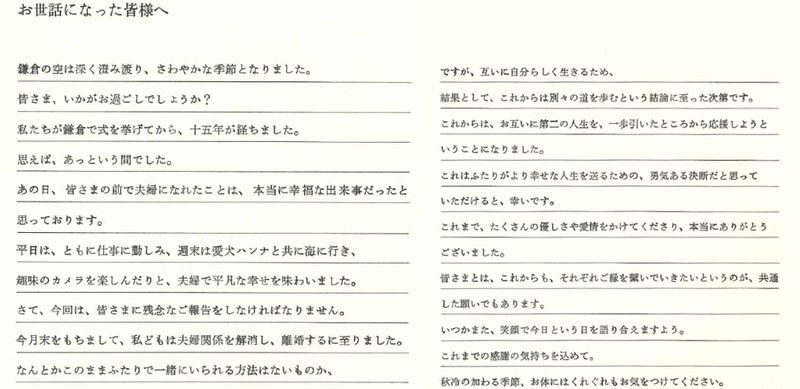 お世話になった皆様へ
鎌倉の空は深く澄み渡り、さわやかな季節となりました。
皆さま、いかがお過ごしでしょうか？
私たちが鎌倉で式を挙げてから、十五年が経ちました。
思えば、あっという間でした。
あの日、皆さまの前で夫婦になれたことは、本当に幸福な出来事だったと
思っております。
平日は、ともに仕事に勤しみ、週末は愛犬ハンナと共に海に行き、
趣味のカメラを楽しんだりと、夫婦で平凡な幸せを味わいました。
さて、今回は、皆さまに残念なご報告をしなければなりません。
今月末をもちまして、私どもは夫婦関係を解消し、離婚するに至りました。
なんとかこのままふたりで一緒にいられる方法はないものか、
ですが、互いに自分らしく生きるため、
結果として、これからは別々の道を歩むという結論に至った次第です。
これからは、お互いに第二の人生を、一歩引いたところから応援しようと
いうことになりました。
これはふたりがより幸せな人生を送るための、勇気ある決断だと思って
いただけると、幸いです。
これまで、たくさんの優しさや愛情をかけてくださり、本当にありがとう
ございました。
皆さまとは、これからも、それぞれご縁を繋いでいきたいというのが、共通
した願いでもあります。
いつかまた、笑顔で今日という日を語り合えますよう。
これまでの感謝の気持ちを込めて。
秋冷の加わる季節、お体にはくれぐれもお気をつけてください。